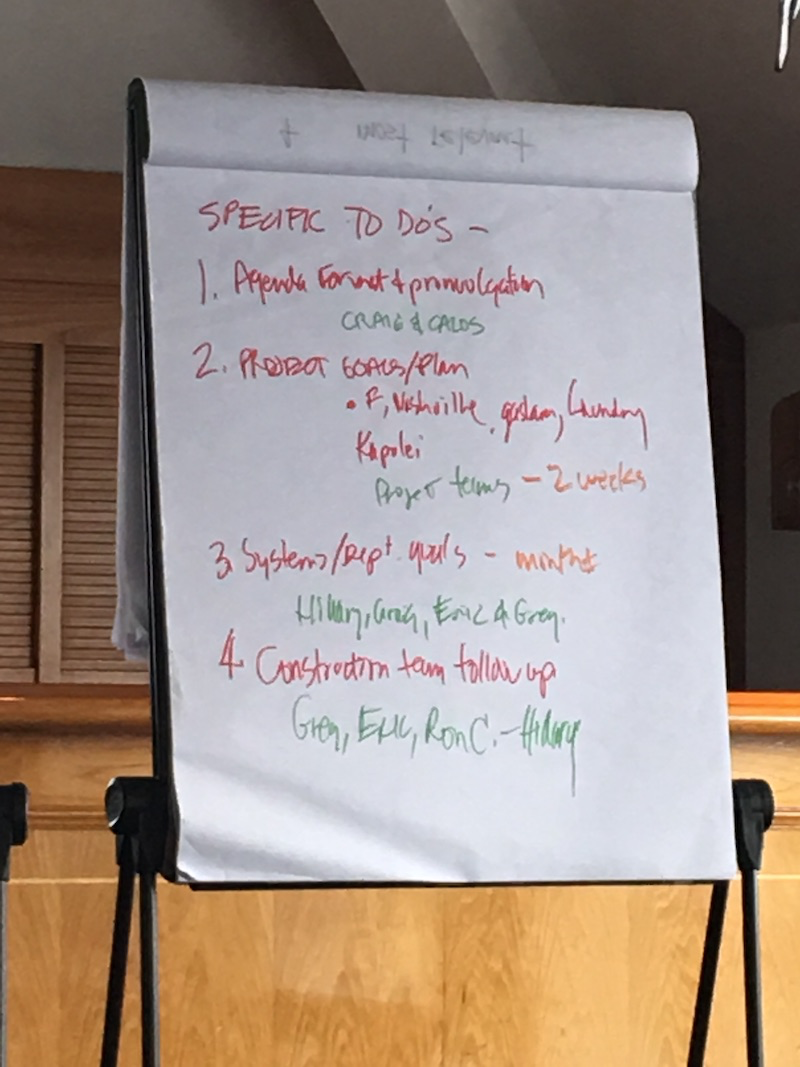 SPECIFIC TO DO'S –
1. Agenda Format & promulgation
CRAIG & CALOS
2. PROJECT GOALS/Plan
• F, Nashville, Laundry
Kapolei
Project teams – 2 weeks
3. Systems/Dept. goals – months
Hillary, Greg, Eric & Greg.
4. Construction team follow up
Greg, ERIC, RON C. – Hilary